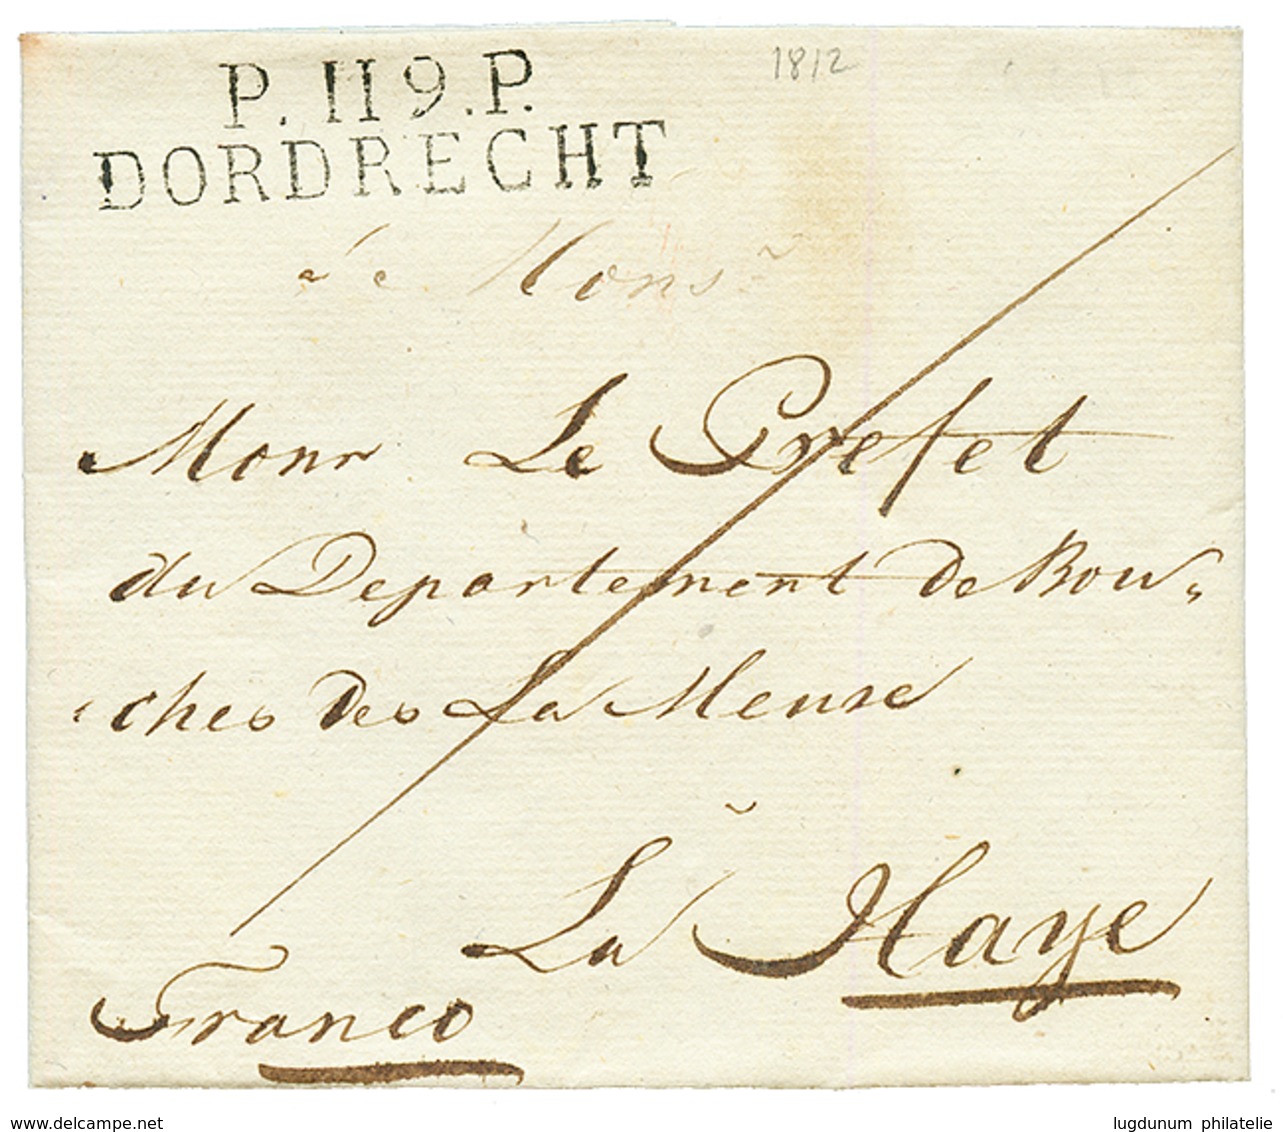 P. 119. P.
1812
DORDRECHT
Monr Le Prefet
du Departement de Bou„
„ches des La Meuse
La Haye
Franco
www.delcampe.net
lugdunum philatelie